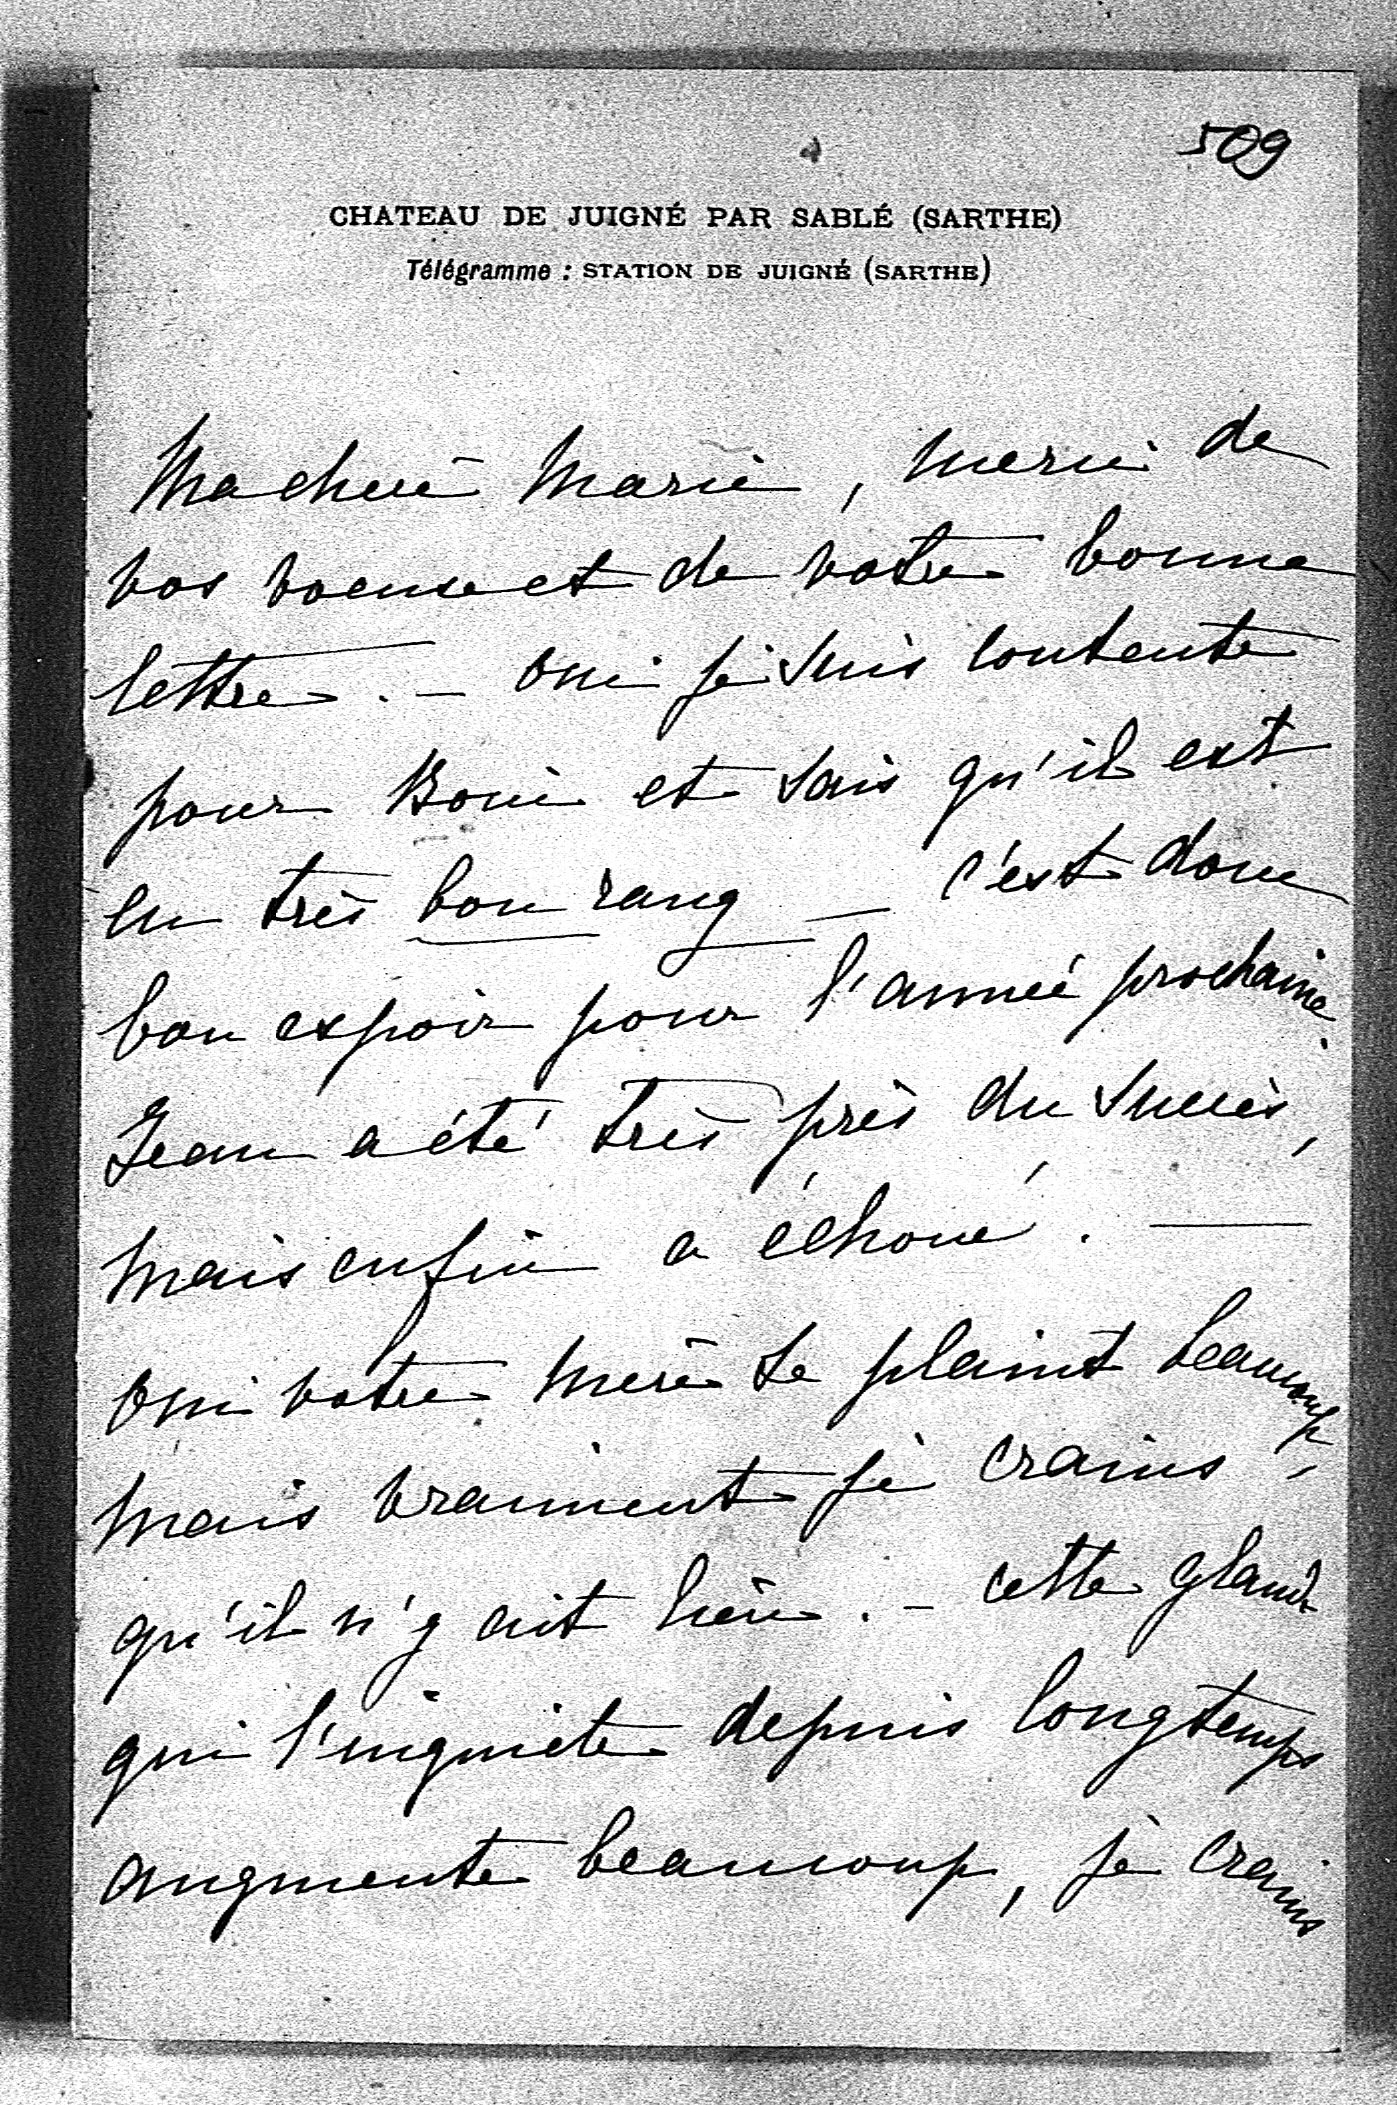 509
CHATEAU DE JUIGNÉ PAR SABLÉ (SARTHE)
Télégramme : STATION DE JUIGNÉ (SARTHE)
Ma chère Marie, merci de
vos voeux et de votre bonne
lettre. — oui je suis contente
pour et sais qu'il est
en très bon rang — c'est donc
bon espoir pour l'année prochaine.
Jean a été très près du succès,
mais enfin a échoué. —
oui votre mère se plaint beaucoup,
mais vraiment je crains
qu'il n'y ait lieu. — cette glande
qui l'inquiète depuis longtemps
augmente beaucoup, je crains